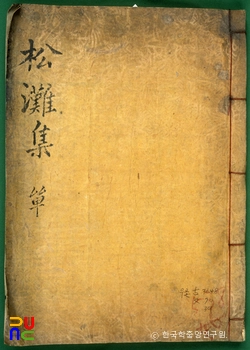 松灘集
單
ⓒ 한국학중앙연구원